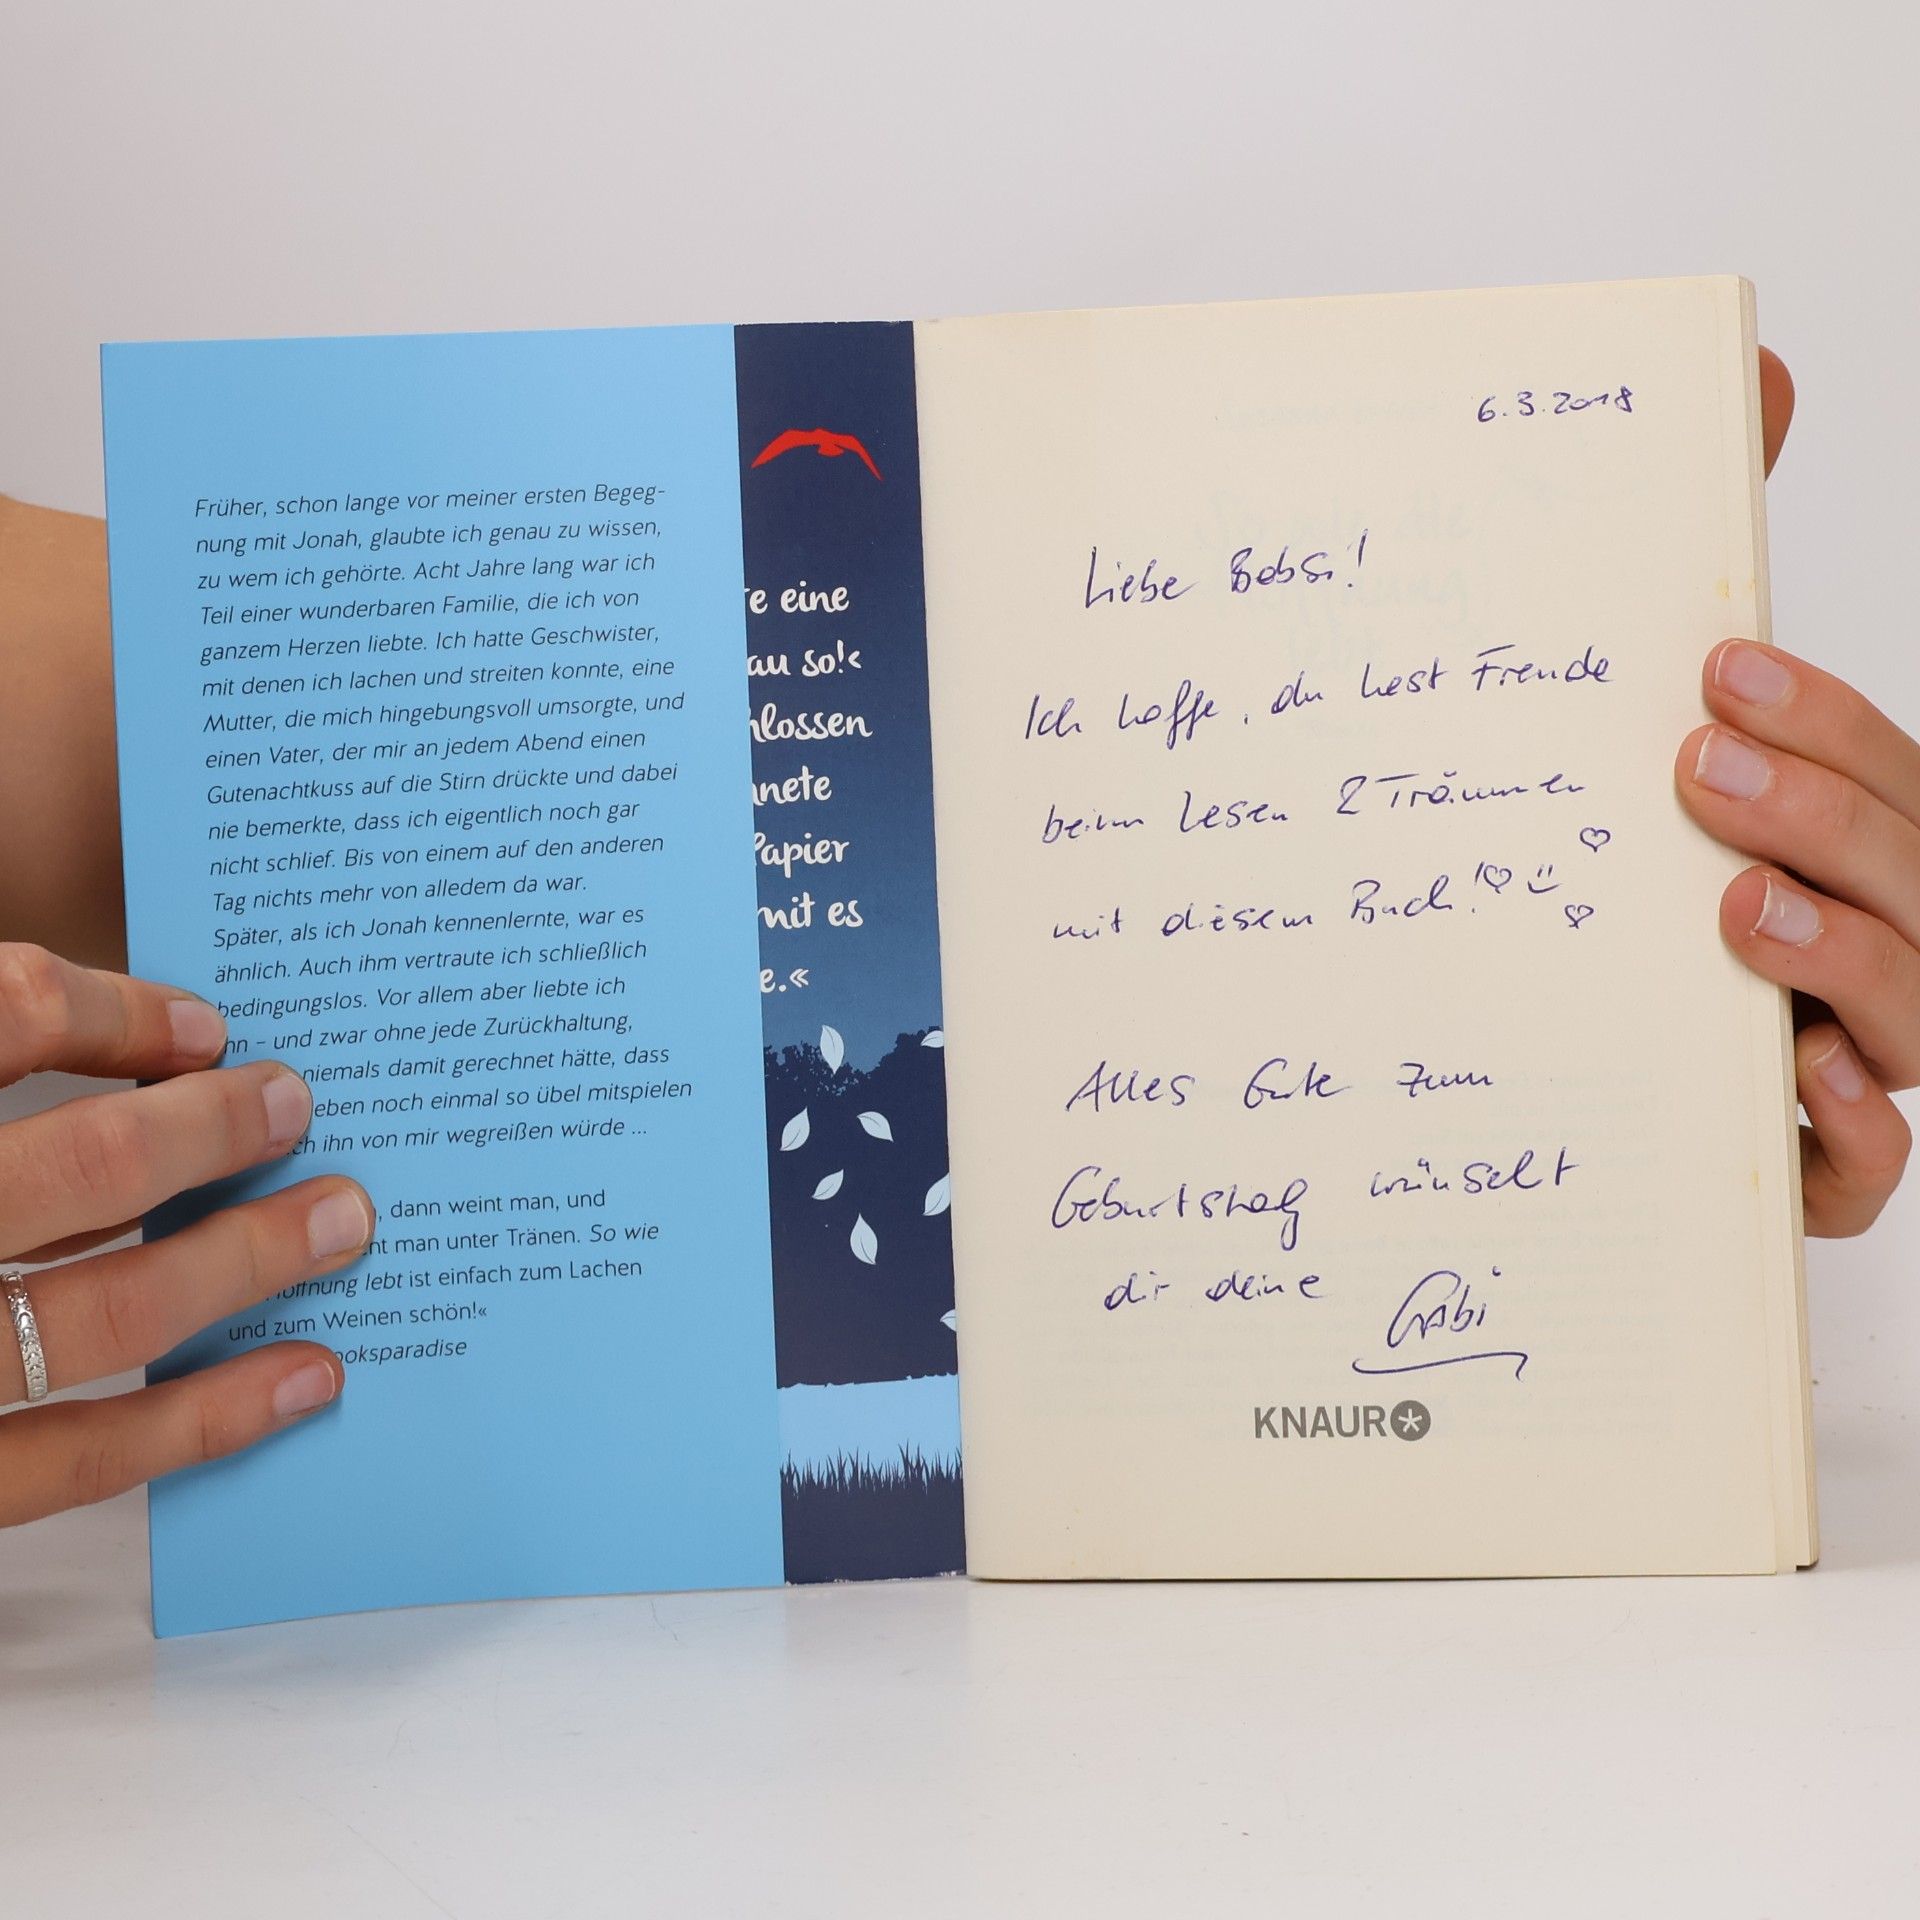 Früher, schon lange vor meiner ersten Begeg-
nung mit Jonah, glaubte ich genau zu wissen,
zu wem ich gehörte. Acht Jahre lang war ich
Teil einer wunderbaren Familie, die ich von
ganzem Herzen liebte. Ich hatte Geschwister,
mit denen ich lachen und streiten konnte, eine
Mutter, die mich hingebungsvoll umsorgte, und
einen Vater, der mir an jedem Abend einen
Gutenachtkuss auf die Stirn drückte und dabei
nie bemerkte, dass ich eigentlich noch gar
nicht schlief. Bis von einem auf den anderen
Tag nichts mehr von alledem da war.
Später, als ich Jonah kennenlernte, war es
ähnlich. Auch ihm vertraute ich schließlich
bedingungslos. Vor allem aber liebte ich
hn – und zwar ohne jede Zurückhaltung,
niemals damit gerechnet hätte, dass
eben noch einmal so übel mitspielen
ch ihn von mir wegreißen würde ...
, dann weint man, und
ht man unter Tränen. So wie
offnung lebt ist einfach zum Lachen
und zum Weinen schön!«
ooksparadise
e eine
au so!‹
hlossen
nete
Papier
mit es
e.«
6.3.2018
Liebe Bobsi!
Ich hoffe, du hast Freude
beim Lesen & Träumen
mit diesem Buch!
Alles Gute zum
Geburtstag wünscht
dir deine Gabi
KNAUR